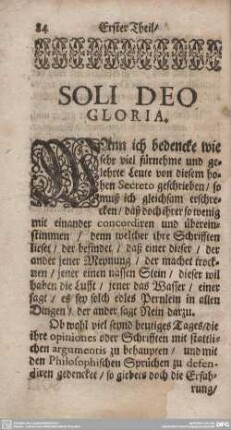 84 Erster Theil/
SOLI DEO
GLORIA.
WAnn ich bedencke wie
sehr viel fürnehme und ge-
lehrte Leute von diesem ho-
hen Secreto geschrieben/ so
muß ich gleichsam erschre-
cken/ daß doch ihrer so wenig
mit einander concordiren und überein-
stimmen/ denn welcher ihre Schrifften
lieset/ der befindet/ daß einer dieser/ der
ander jener Meynung/ der machet trock-
nen/ jener einen nassen Stein/ dieser wil
haben die Lufft/ jener das Wasser/ einer
sagt/ es sey solch edles Pernlein in allen
Dingen/ der ander sagt Nein darzu.
Ob wohl viel seynd heutiges Tages/ die
ihre opiniones oder Schrifften mit stattli-
chen argumentis zu behaupten/ und mit
den Philosophischen Sprüchen zu defen-
diren gedencket/ so giebets doch die Erfah-
rung/